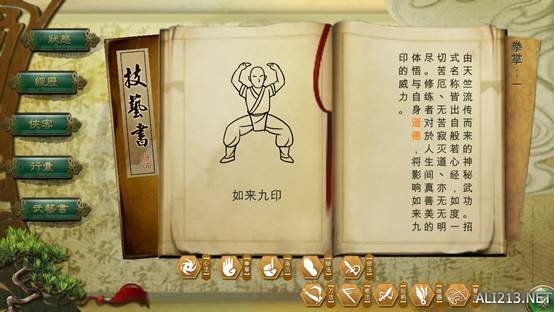 狀態
經歷
俠客
行囊
武藝書
技藝書
如来九印
拳掌：一
由天竺流传而来的神秘武功。招
式名称皆出自般若心经，如度一
切苦厄丶无苦寂灭道丶亦无无明
尽。修练者对於人生间真善美的
体悟与自身道德，将影响如来九
印的威力。
ALI213.NET